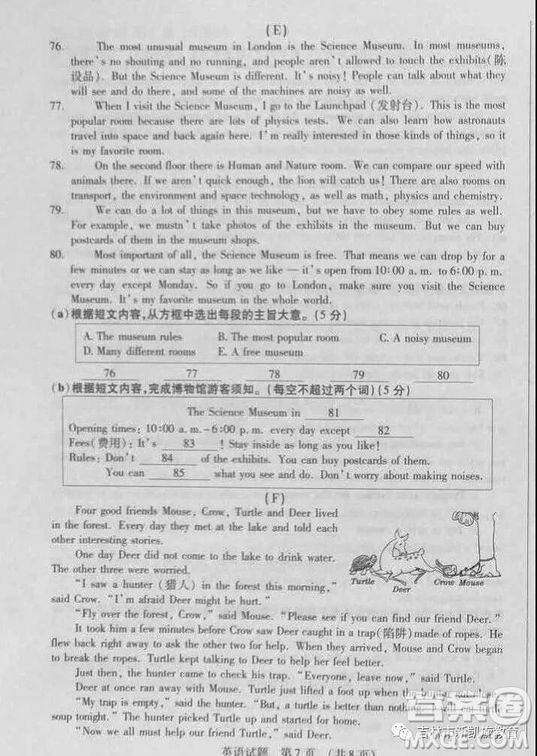 (E)
76. The most unusual museum in London is the Science Museum. In most museums,
there's no shouting and no running, and people aren't allowed to touch the exhibits(陈
设品). But the Science Museum is different. It's noisy! People can talk about what they
will see and do there, and some of the machines are noisy as well.
77. When I visit the Science Museum, I go to the Launchpad (发射台). This is the most
popular room because there are lots of physics tests. We can also learn how astronauts
travel into space and back again here. I'm really interested in those kinds of things, so it
is my favorite room.
78. On the second floor there is Human and Nature room. We can compare our speed with
animals there. If we aren't quick enough, the lion will catch us! There are also rooms on
transport, the environment and space technology, as well as math, physics and chemistry.
79. We can do a lot of things in this museum, but we have to obey some rules as well.
For example, we mustn't take photos of the exhibits in the museum. But we can buy
postcards of them in the museum shops.
80. Most important of all, the Science Museum is free. That means we can drop by for a
few minutes or we can stay as long as we like — it's open from 10:00 a. m. to 6:00 p. m.
every day except Monday. So if you go to London, make sure you visit the Science
Museum. It's my favorite museum in the whole world.
(a)根据短文内容,从方框中选出每段的主旨大意。(5 分)
A. The museum rules B. The most popular room C. A noisy museum
D. Many different rooms E. A free museum
76 77 78 79 80
(b)根据短文内容,完成博物馆游客须知。(每空不超过两个词)(5 分)
The Science Museum in 81
Opening times: 10:00 a. m. -6:00 p. m. every day except 82
Fees(费用): It's 83 ! Stay inside as long as you like!
Rules: Don't 84 of the exhibits. You can buy postcards of them.
You can 85 what you see and do. Don't worry about making noises.
(F)
Four good friends Mouse, Crow, Turtle and Deer lived
in the forest. Every day they met at the lake and told each
other interesting stories.
One day Deer did not come to the lake to drink water.
The other three were worried.
"I saw a hunter (猎人) in the forest this morning,"
said Crow. "I'm afraid Deer might be hurt."
Turtle Deer Crow Mouse
"Fly over the forest, Crow," said Mouse. "Please see if you can find our friend Deer."
It took him a few minutes before Crow saw Deer caught in a trap(陷阱)made of ropes. He
flew back right away to ask Mouse and Turtle to help. When they arrived, Mouse and Crow began
to break the ropes. Turtle kept talking to Deer to help him feel less afraid.
Just then, the hunter came to check his trap. "Everyone, leave now," said Mouse. Crow and
Deer at once ran away with Mouse. Turtle just lifted a foot up
"My trap is empty," said the hunter. "But, a turtle is better than nothing. It
soup tonight." The hunter picked Turtle up and started off home.
"Now we all must help our friend Turtle," said Mouse.
英语试题 第 7 页 (共 8 页)
答案圈
吉林市新凯旋教育